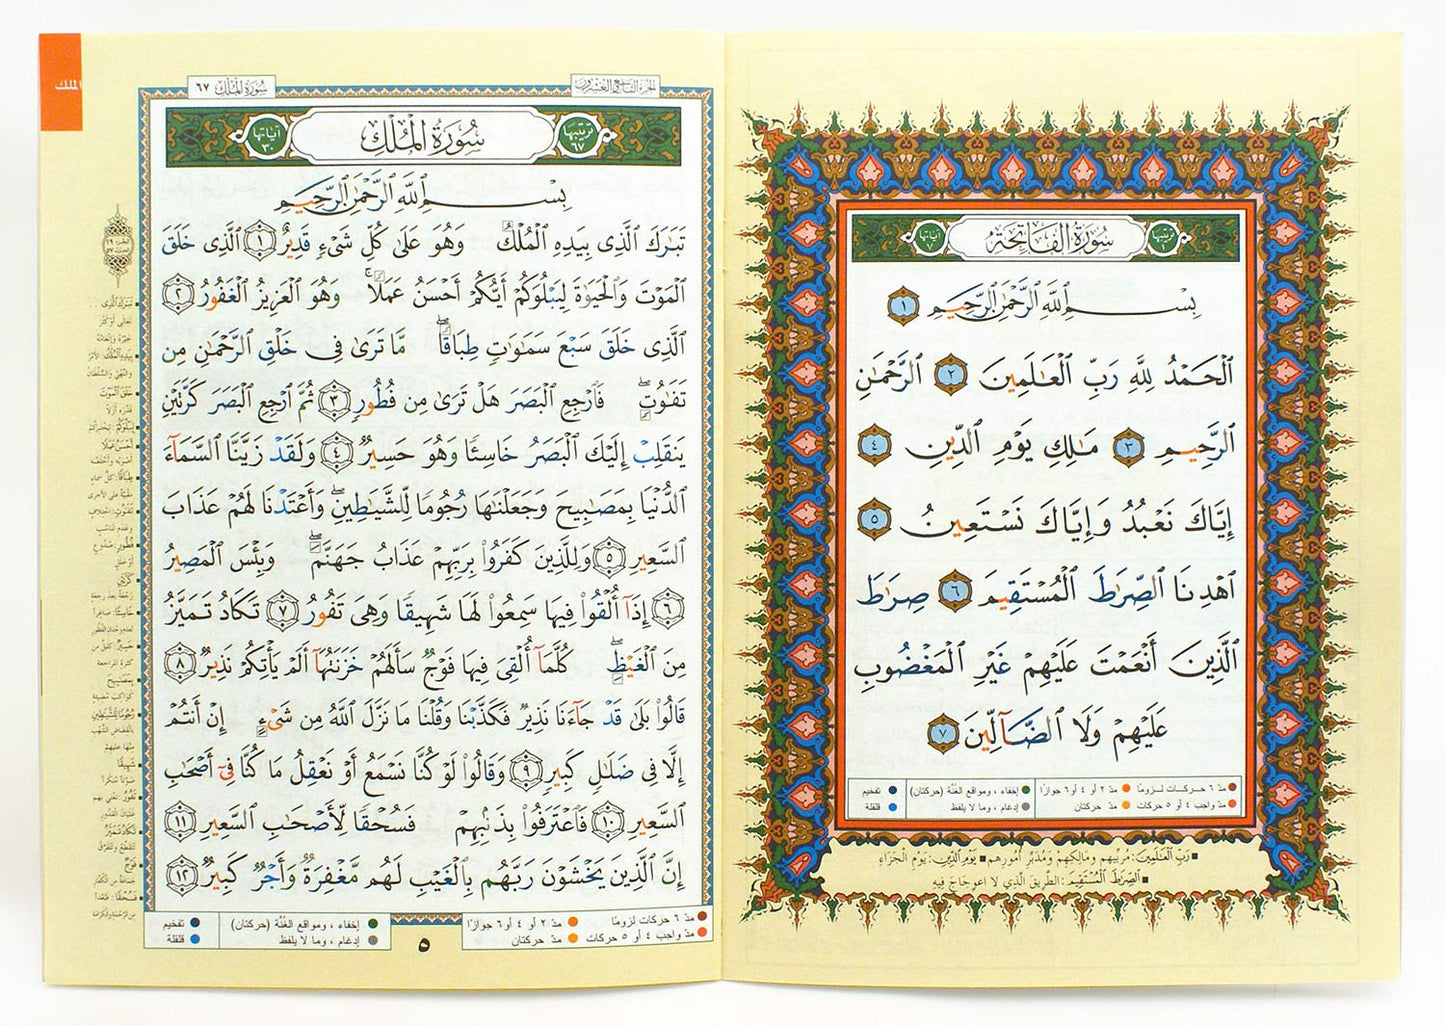 سُورَةُ الْفَاتِحَةِ
تَرْتِيبُهَا ١
آيَاتُهَا ٧
بِسْمِ ٱللَّهِ ٱلرَّحْمَٰنِ ٱلرَّحِيمِ ١
ٱلْحَمْدُ لِلَّهِ رَبِّ ٱلْعَٰلَمِينَ ٢ ٱلرَّحْمَٰنِ
ٱلرَّحِيمِ ٣ مَٰلِكِ يَوْمِ ٱلدِّينِ ٤
إِيَّاكَ نَعْبُدُ وَإِيَّاكَ نَسْتَعِينُ ٥
ٱهْدِنَا ٱلصِّرَٰطَ ٱلْمُسْتَقِيمَ ٦ صِرَٰطَ
ٱلَّذِينَ أَنْعَمْتَ عَلَيْهِمْ غَيْرِ ٱلْمَغْضُوبِ
عَلَيْهِمْ وَلَا ٱلضَّآلِّينَ ٧
مدّ ٦ حركات لزومًا مدّ ٢ أو ٤ أو ٦ جوازًا إخفاء، ومواقع الغُنَّة (حركتان) تفخيم
مدّ واجب ٤ أو ٥ حركات مدّ حركتان إدغام، وما لا يلفظ قلقلة
رَبِّ الْعَالَمِينَ: مُرَبِّيهِم وَمَالِكِهِم وَمُدَبِّرِ أُمُورِهِم يَوْمِ الدِّينِ: يَوْمِ الْجَزَاءِ
الصِّرَاطَ الْمُسْتَقِيمَ: الطَّرِيقَ الَّذِي لَا اعْوِجَاجَ فِيهِ
الجزء التاسع والعشرون
سُورَةُ الْمُلْكِ ٦٧
الملك
سُورَةُ الْمُلْكِ
تَرْتِيبُهَا ٦٧
آيَاتُهَا ٣٠
بِسْمِ ٱللَّهِ ٱلرَّحْمَٰنِ ٱلرَّحِيمِ
تَبَٰرَكَ ٱلَّذِى بِيَدِهِ ٱلْمُلْكُ وَهُوَ عَلَىٰ كُلِّ شَىْءٍ قَدِيرٌ ١ ٱلَّذِى خَلَقَ
ٱلْمَوْتَ وَٱلْحَيَوٰةَ لِيَبْلُوَكُمْ أَيُّكُمْ أَحْسَنُ عَمَلًا وَهُوَ ٱلْعَزِيزُ ٱلْغَفُورُ ٢
ٱلَّذِى خَلَقَ سَبْعَ سَمَٰوَٰتٍ طِبَاقًا مَّا تَرَىٰ فِى خَلْقِ ٱلرَّحْمَٰنِ مِن
تَفَٰوُتٍ فَٱرْجِعِ ٱلْبَصَرَ هَلْ تَرَىٰ مِن فُطُورٍ ٣ ثُمَّ ٱرْجِعِ ٱلْبَصَرَ كَرَّتَيْنِ
يَنقَلِبْ إِلَيْكَ ٱلْبَصَرُ خَاسِئًا وَهُوَ حَسِيرٌ ٤ وَلَقَدْ زَيَّنَّا ٱلسَّمَآءَ
ٱلدُّنْيَا بِمَصَٰبِيحَ وَجَعَلْنَٰهَا رُجُومًا لِّلشَّيَٰطِينِ وَأَعْتَدْنَا لَهُمْ عَذَابَ
ٱلسَّعِيرِ ٥ وَلِلَّذِينَ كَفَرُوا۟ بِرَبِّهِمْ عَذَابُ جَهَنَّمَ وَبِئْسَ ٱلْمَصِيرُ
٦ إِذَآ أُلْقُوا۟ فِيهَا سَمِعُوا۟ لَهَا شَهِيقًا وَهِىَ تَفُورُ ٧ تَكَادُ تَمَيَّزُ
مِنَ ٱلْغَيْظِ كُلَّمَآ أُلْقِىَ فِيهَا فَوْجٌ سَأَلَهُمْ خَزَنَتُهَآ أَلَمْ يَأْتِكُمْ نَذِيرٌ ٨
قَالُوا۟ بَلَىٰ قَدْ جَآءَنَا نَذِيرٌ فَكَذَّبْنَا وَقُلْنَا مَا نَزَّلَ ٱللَّهُ مِن شَىْءٍ إِنْ أَنتُمْ
إِلَّا فِى ضَلَٰلٍ كَبِيرٍ ٩ وَقَالُوا۟ لَوْ كُنَّا نَسْمَعُ أَوْ نَعْقِلُ مَا كُنَّا فِىٓ أَصْحَٰبِ
ٱلسَّعِيرِ ١٠ فَٱعْتَرَفُوا۟ بِذَنۢبِهِمْ فَسُحْقًا لِّأَصْحَٰبِ ٱلسَّعِيرِ ١١
إِنَّ ٱلَّذِينَ يَخْشَوْنَ رَبَّهُم بِٱلْغَيْبِ لَهُم مَّغْفِرَةٌ وَأَجْرٌ كَبِيرٌ ١٢
مدّ ٦ حركات لزومًا مدّ ٢ أو ٤ أو ٦ جوازًا إخفاء، ومواقع الغُنَّة (حركتان) تفخيم
مدّ واجب ٤ أو ٥ حركات مدّ حركتان إدغام، وما لا يلفظ قلقلة
٥